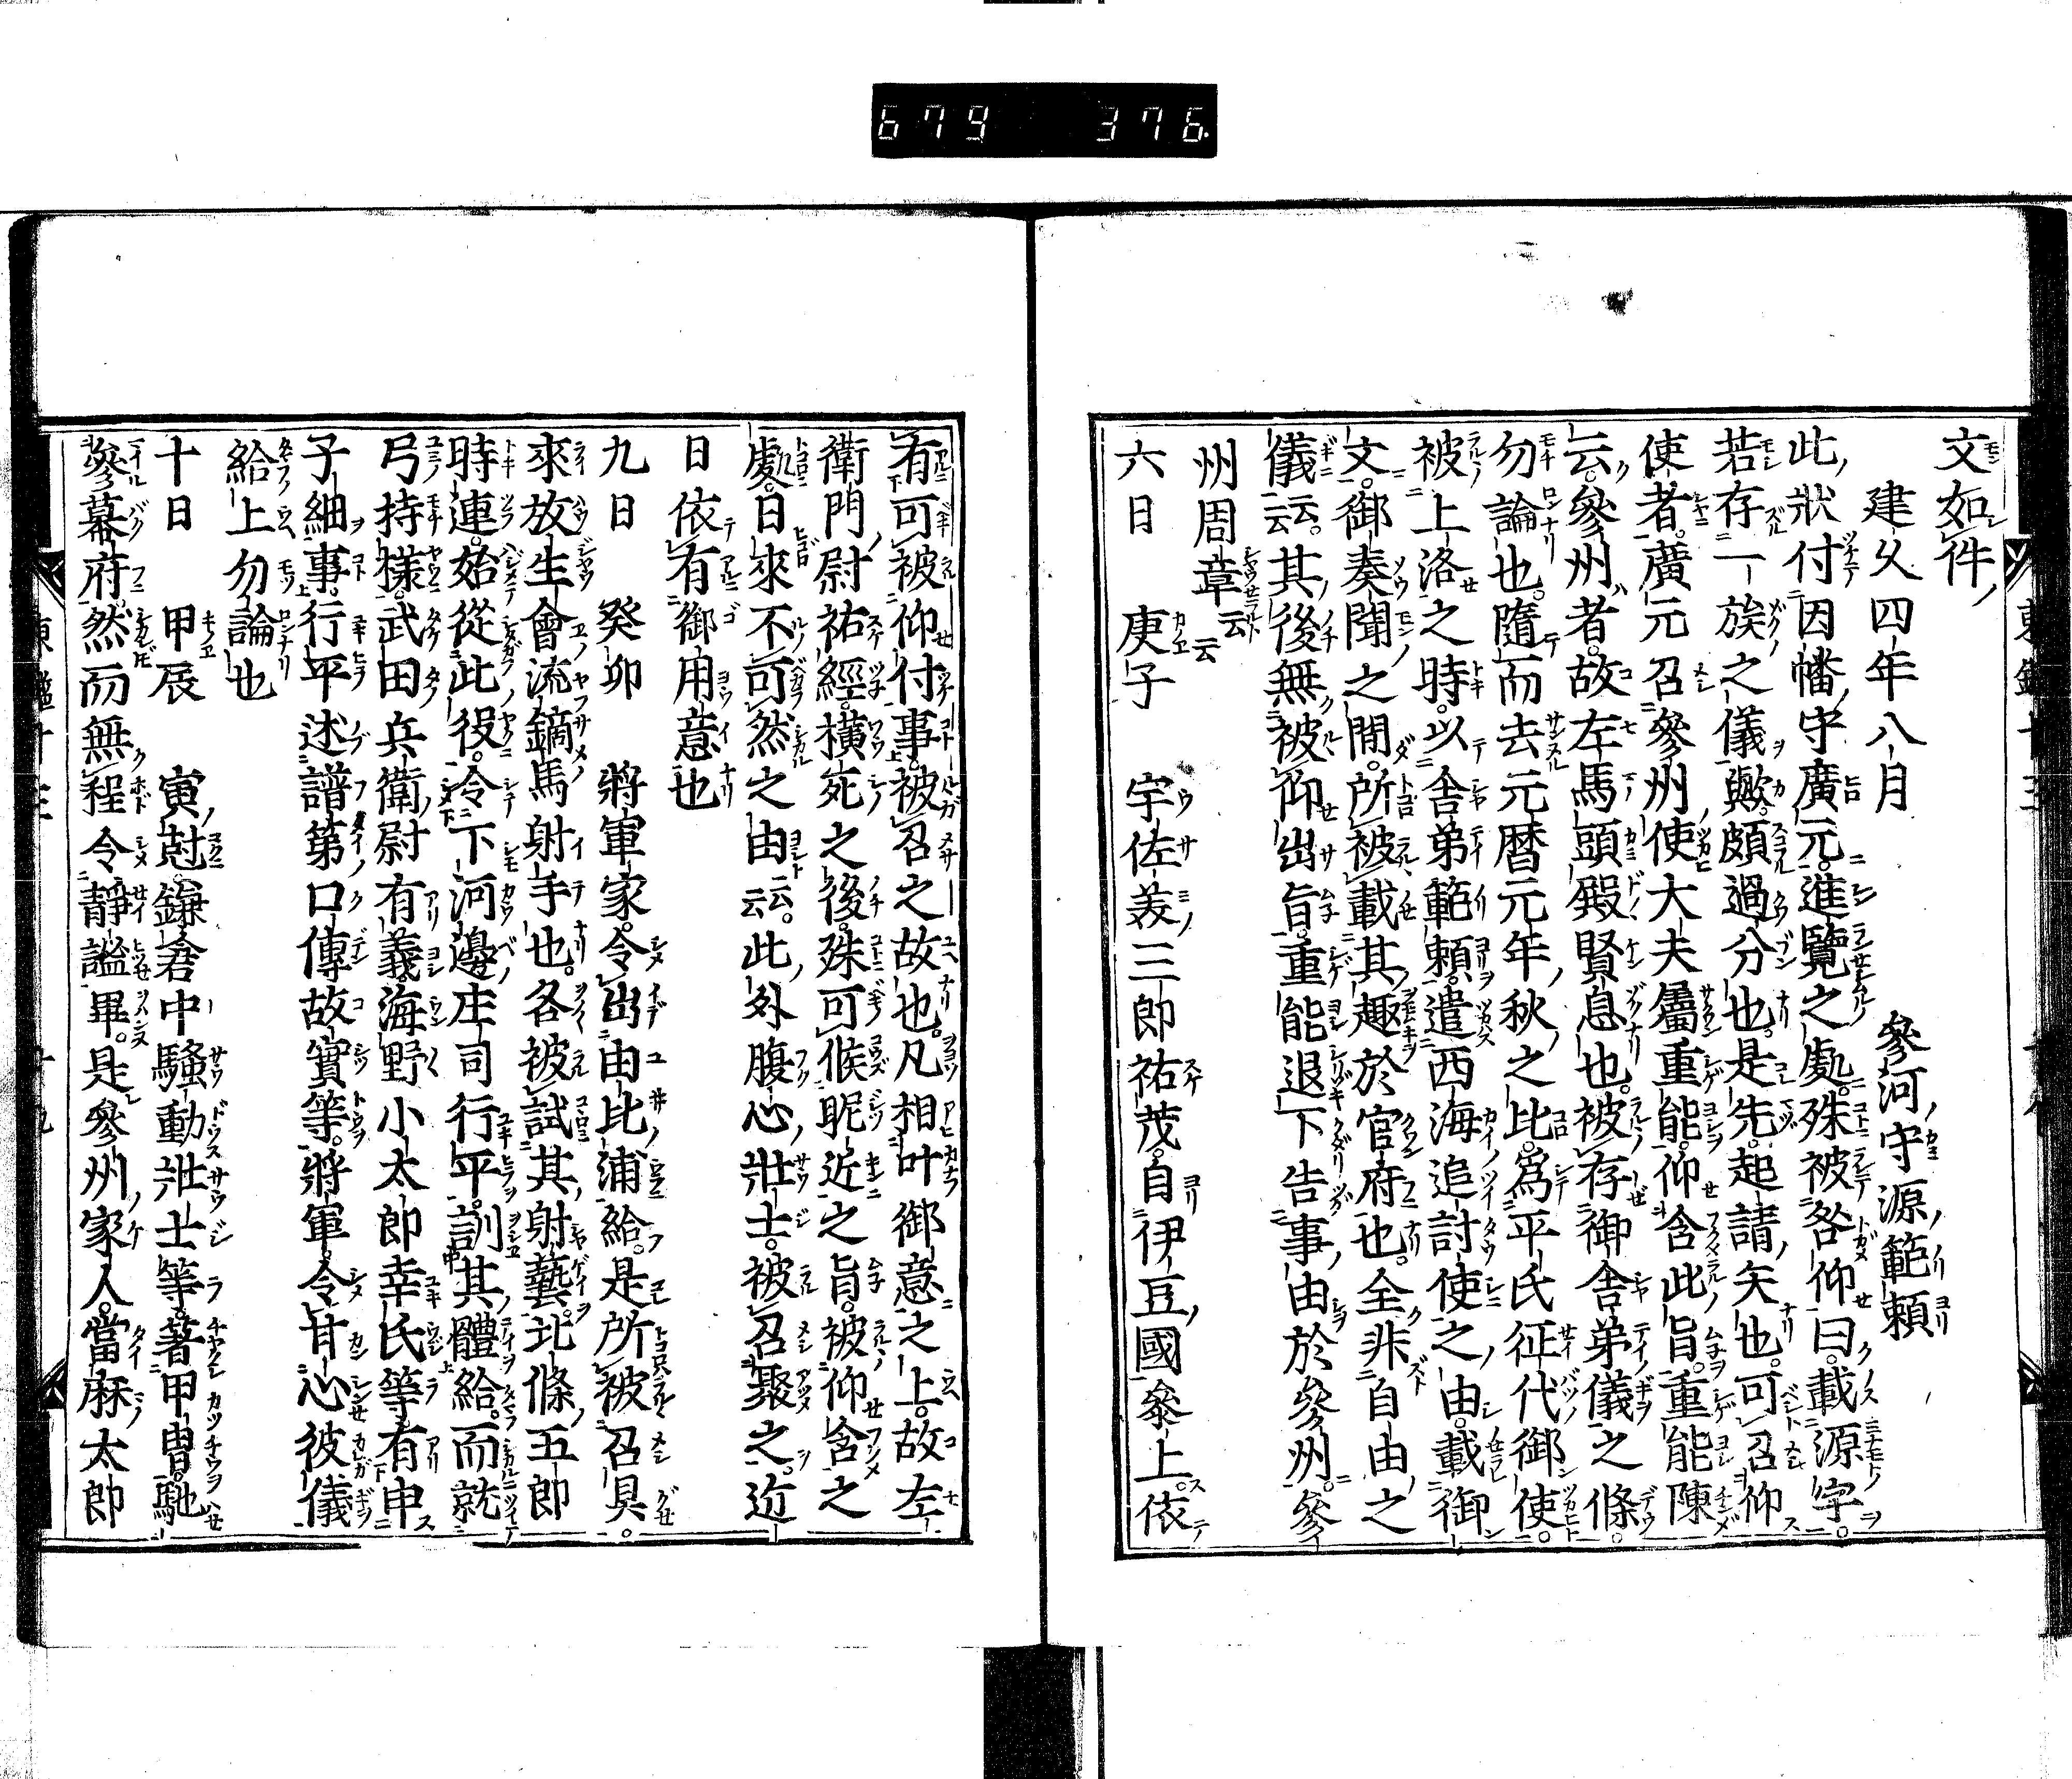 679 376
文如件
建久四年八月 參河守源範頼
此狀付因幡守廣元進覽之處。殊被咎仰曰。載源字。
若存一族之儀歟。頗過分也。是先起請矢也。可召仰
使者。廣元召參州使大夫屬重能。仰含此旨。重能陳
云。參州者。故左馬頭殿賢息也。被存御舎弟儀之條。
勿論也。隨而去元暦元年秋之比。爲平氏征伐御使。
被上洛之時。以舎弟範頼。遣西海追討使之由。載御
文。御奏聞之間。所被載其趣於官府也。全非自由之
儀云云。其後無被仰出旨。重能退下告事由於參州。參
州周章云云
六日 庚子 宇佐美三郎祐茂。自伊豆國參上。依
有可被仰付事。被召之故也。凡相叶御意之上。故左
衛門尉祐經。横死之後。殊可候昵近之旨。被仰含之
處。日來不可然之由云云。此外腹心壯士。被召聚之。近
日依有御用意也
九日 癸卯 將軍家。令出由比浦給。是所被召具。
來放生會流鏑馬射手也。各被試其射藝。北條五郎
時連。始從此役。冷下河邊庄司行平。訓其體給。而就
弓持樣。武田兵衛尉有義海野小太郎幸氏等有申
子細事。行平述譜第口傳故實等。將軍令甘心彼儀
給上勿論也
十日 甲辰 寅尅。鎌倉中騷動壯士等。著甲冑。馳
參幕府。然而無程令靜謐畢。是參州家人。當麻太郎